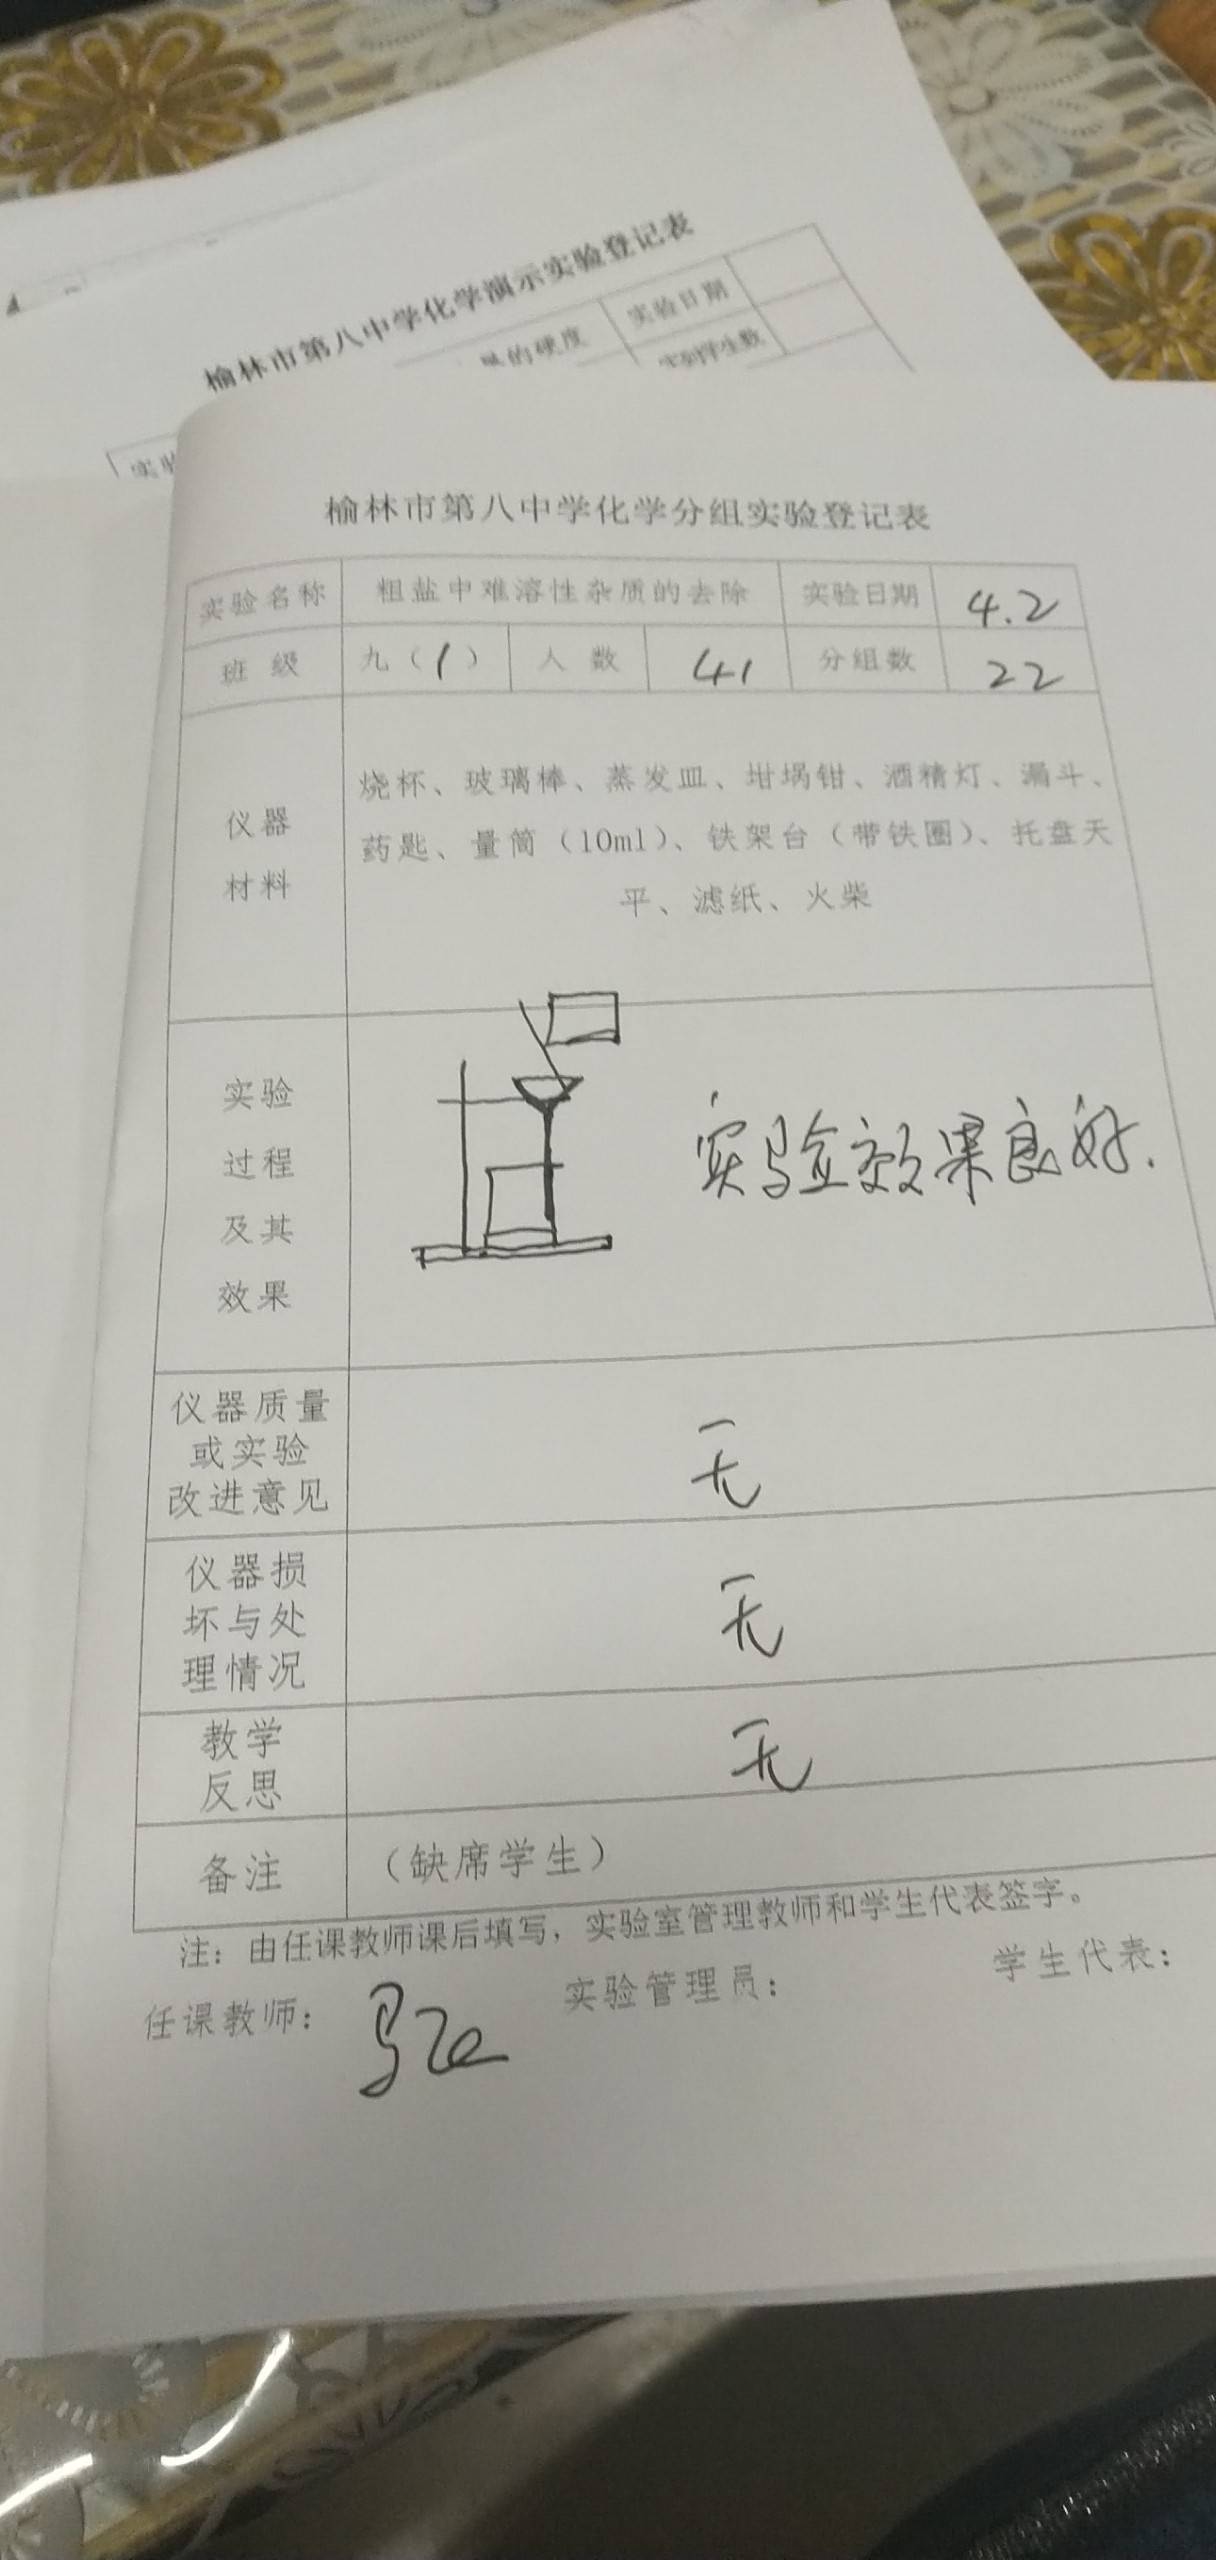 榆林市第八中学化学演示实验登记表
的硬度 实验日期
实到学生数
实验
榆林市第八中学化学分组实验登记表
实验名称 粗盐中难溶性杂质的去除 实验日期 4.2
班级 九（1） 人数 41 分组数 22
仪器
材料
烧杯、玻璃棒、蒸发皿、坩埚钳、酒精灯、漏斗、
药匙、量筒（10ml）、铁架台（带铁圈）、托盘天
平、滤纸、火柴
实验
过程
及其
效果
实验效果良好.
仪器质量
或实验
改进意见
无
仪器损
坏与处
理情况
无
教学
反思
无
备注 （缺席学生）
注：由任课教师课后填写，实验室管理教师和学生代表签字。
任课教师： 实验管理员： 学生代表：